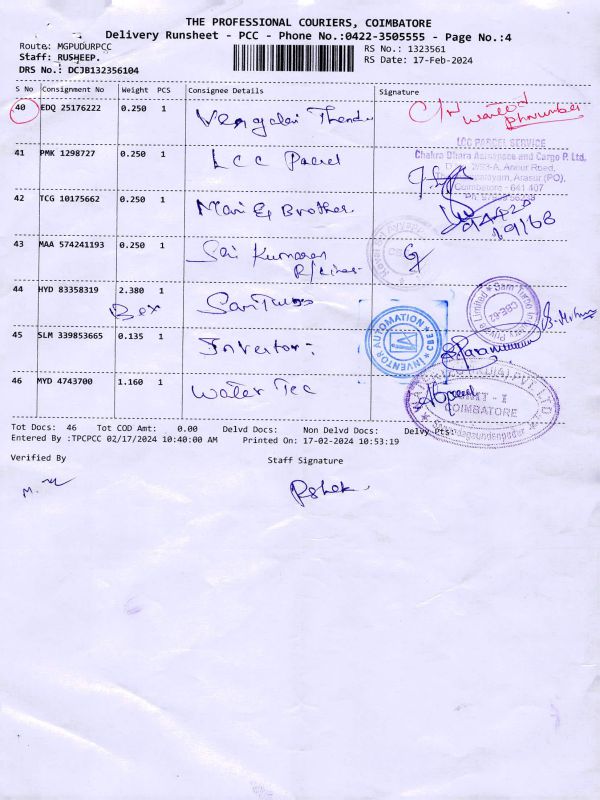 THE PROFESSIONAL COURIERS, COIMBATORE
Delivery Runsheet - PCC - Phone No.:0422-3505555 - Page No.:4
Route: MGPUDURPCC
RS No.: 1323561
Staff: RUSHEEP.
RS Date: 17-Feb-2024
DRS No.: DCJB132356104
S No Consignment No Weight PCS Consignee Details Signature
40 EDQ 25176222 0.250 1
41 PMK 1298727 0.250 1 LCC Parcel
LCC PARCEL SERVICE
Chakra Dhara Aerospace and Cargo P. Ltd.
Coimbatore - 641 407
42 TCG 10175662 0.250 1 Mari & Brother.
94420
19168
43 MAA 574241193 0.250 1 Sai Kumaran
44 HYD 83358319 2.380 1
Box
45 SLM 339853665 0.135 1 Inventor
INVENTOR AUTOMATION CBE
46 MYD 4743700 1.160 1 Water Tec
UNIT - I
COIMBATORE
Tot Docs: 46 Tot COD Amt: 0.00 Delvd Docs: Non Delvd Docs: Delvy Pts:
Entered By :TPCPCC 02/17/2024 10:40:00 AM Printed On: 17-02-2024 10:53:19
Verified By Staff Signature